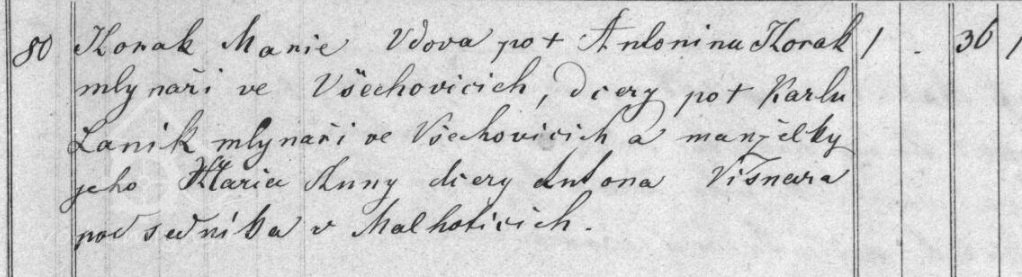 80 Horak Marie Vdova po † Antoninu Horak 1 . 36 1
mlynaři ve Všechovicich, dcery po † Karlu
Lanik mlynaři ve Všechovicich a manželky
jeho Maria Anny dcery Antona Višnara
podsedníka v Malhoticich.